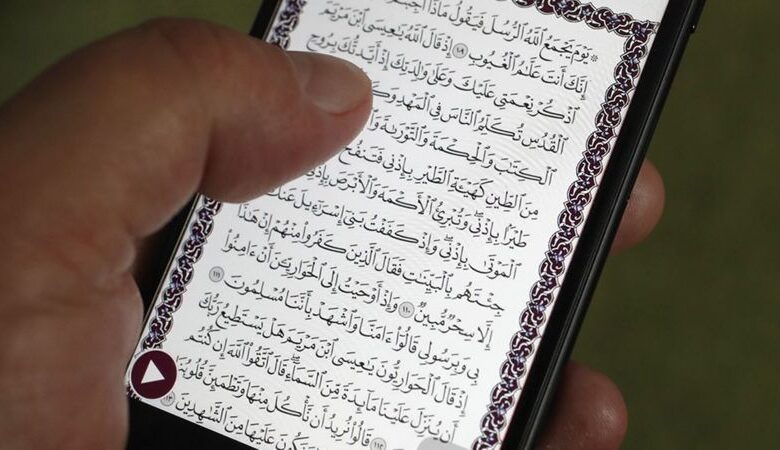 ۞ يَوْمَ يَجْمَعُ ٱللَّهُ ٱلرُّسُلَ فَيَقُولُ مَاذَآ أُجِبْتُمْ
إِنَّكَ أَنتَ عَلَّٰمُ ٱلْغُيُوبِ ١٠٩ إِذْ قَالَ ٱللَّهُ يَٰعِيسَى ٱبْنَ مَرْيَمَ
ٱذْكُرْ نِعْمَتِى عَلَيْكَ وَعَلَىٰ وَٰلِدَتِكَ إِذْ أَيَّدتُّكَ بِرُوحِ
ٱلْقُدُسِ تُكَلِّمُ ٱلنَّاسَ فِى ٱلْمَهْدِ
ٱلْكِتَٰبَ وَٱلْحِكْمَةَ وَٱلتَّوْرَىٰةَ
مِنَ ٱلطِّينِ كَهَيْـَٔةِ ٱلطَّيْرِ بِإِذْنِى فَتَنفُخُ
طَيْرًۢا بِإِذْنِى ۖ وَتُبْرِئُ ٱلْأَكْمَهَ وَٱلْأَبْرَصَ بِإِذْنِى
ٱلْمَوْتَىٰ بِإِذْنِى ۖ وَإِذْ كَفَفْتُ بَنِىٓ إِسْرَٰٓءِيلَ عَنكَ
جِئْتَهُم بِٱلْبَيِّنَٰتِ فَقَالَ ٱلَّذِينَ كَفَرُوا۟ مِنْهُمْ إِنْ هَٰذَآ
إِلَّا سِحْرٌ مُّبِينٌ ١١٠ وَإِذْ أَوْحَيْتُ إِلَى ٱلْحَوَارِيِّـۧنَ أَنْ ءَامِنُوا۟
بِى وَبِرَسُولِى قَالُوٓا۟ ءَامَنَّا وَٱشْهَدْ بِأَنَّنَا مُسْلِمُونَ ١١١
إِذْ قَالَ ٱلْحَوَارِيُّونَ يَٰعِيسَى ٱبْنَ مَرْيَمَ هَلْ يَسْتَطِيعُ رَبُّكَ
أَن يُنَزِّلَ عَلَيْنَا مَآئِدَةً مِّنَ ٱلسَّمَآءِ ۖ قَالَ ٱتَّقُوا۟ ٱللَّهَ إِن كُنتُم
١١٢ قَالُوا۟ نُرِيدُ أَن نَّأْكُلَ مِنْهَا وَتَطْمَئِنَّ قُلُوبُنَا
وَنَكُونَ عَلَيْهَا مِنَ ٱلشَّٰهِدِينَ ١١٣